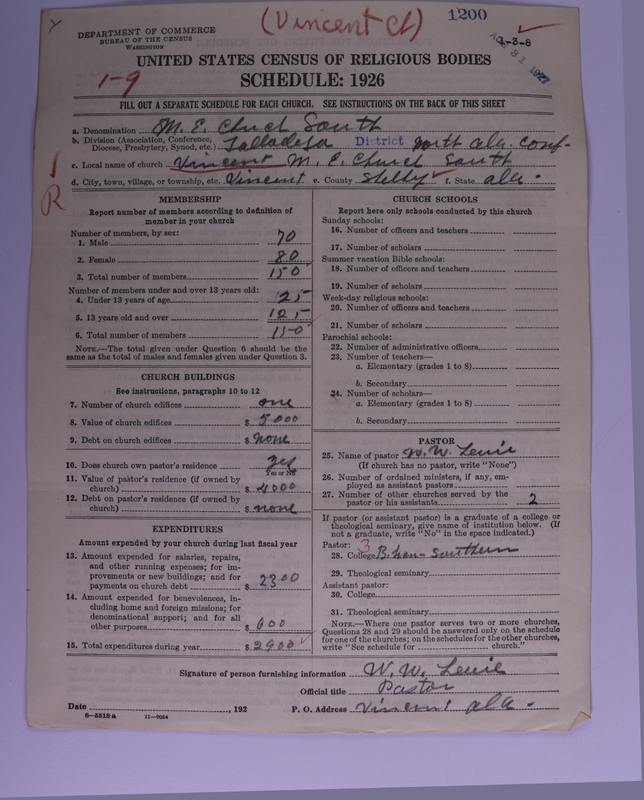 (Vincent Ch)
1200
DEPARTMENT OF COMMERCE
BUREAU OF THE CENSUS
WASHINGTON
UNITED STATES CENSUS OF RELIGIOUS BODIES
SCHEDULE: 1926
1-9
FILL OUT A SEPARATE SCHEDULE FOR EACH CHURCH. SEE INSTRUCTIONS ON THE BACK OF THIS SHEET
a. Denomination M. E. Church South
b. Division (Association, Conference, Diocese, Presbytery, Synod, etc.) Talladega District North Ala. Conf-
c. Local name of church Vincent M. E. Church South
d. City, town, village, or township, etc. Vincent e. County Shelby f. State Ala.
R
MEMBERSHIP
Report number of members according to definition of
member in your church
Number of members, by sex:
1. Male 70
2. Female 80
3. Total number of members 150
Number of members under and over 13 years old:
4. Under 13 years of age 25
5. 13 years old and over 125
6. Total number of members 150
NOTE.—The total given under Question 6 should be the
same as the total of males and females given under Question 3.
CHURCH BUILDINGS
See instructions, paragraphs 10 to 12
7. Number of church edifices one
8. Value of church edifices $ 5000
9. Debt on church edifices $ none
10. Does church own pastor's residence yes
Yes or No
11. Value of pastor's residence (if owned by
church) $ 4000
12. Debt on pastor's residence (if owned by
church) $ none
EXPENDITURES
Amount expended by your church during last fiscal year
13. Amount expended for salaries, repairs,
and other running expenses; for im-
provements or new buildings; and for
payments on church debt $ 2300
14. Amount expended for benevolences, in-
cluding home and foreign missions; for
denominational support; and for all
other purposes $ 600
15. Total expenditures during year $ 2900
CHURCH SCHOOLS
Report here only schools conducted by this church
Sunday schools:
16. Number of officers and teachers
17. Number of scholars
Summer vacation Bible schools:
18. Number of officers and teachers
19. Number of scholars
Week-day religious schools:
20. Number of officers and teachers
21. Number of scholars
Parochial schools:
22. Number of administrative officers
23. Number of teachers—
a. Elementary (grades 1 to 8)
b. Secondary
24. Number of scholars—
a. Elementary (grades 1 to 8)
b. Secondary
PASTOR
25. Name of pastor W. W. Lewie
(If church has no pastor, write "None")
26. Number of ordained ministers, if any, em-
ployed as assistant pastors
27. Number of other churches served by the
pastor or his assistants 2
If pastor (or assistant pastor) is a graduate of a college or
theological seminary, give name of institution below. (If
not a graduate, write "No" in the space indicated.)
Pastor: 3
28. College B.ham-Southern
29. Theological seminary
Assistant pastor:
30. College
31. Theological seminary
NOTE.—Where one pastor serves two or more churches,
Questions 28 and 29 should be answered only on the schedule
for one of the churches; on the schedules for the other churches,
write "See schedule for church."
Signature of person furnishing information W. W. Lewie
Official title Pastor
Date , 192 P. O. Address Vincent Ala.
8-5318a 11-9024